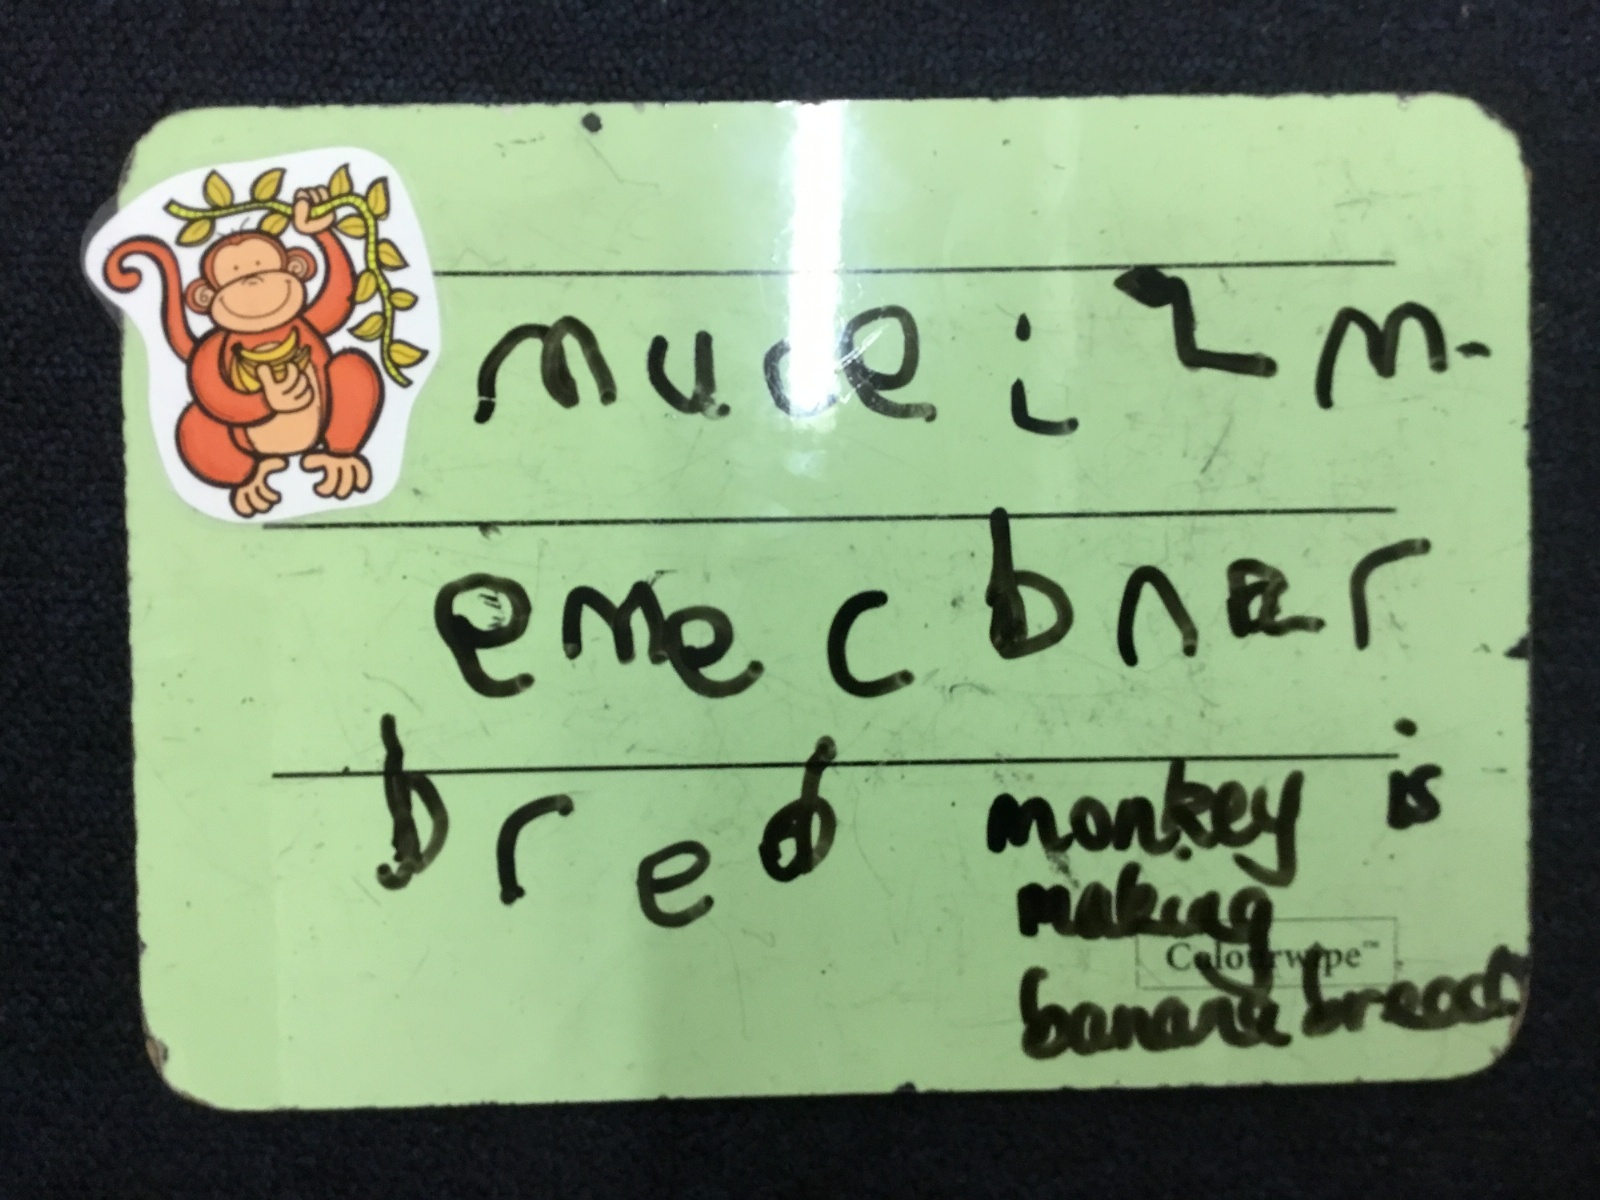 muce iz m
emec bner
bred
monkey is
making
Colourwipe™
banana bread